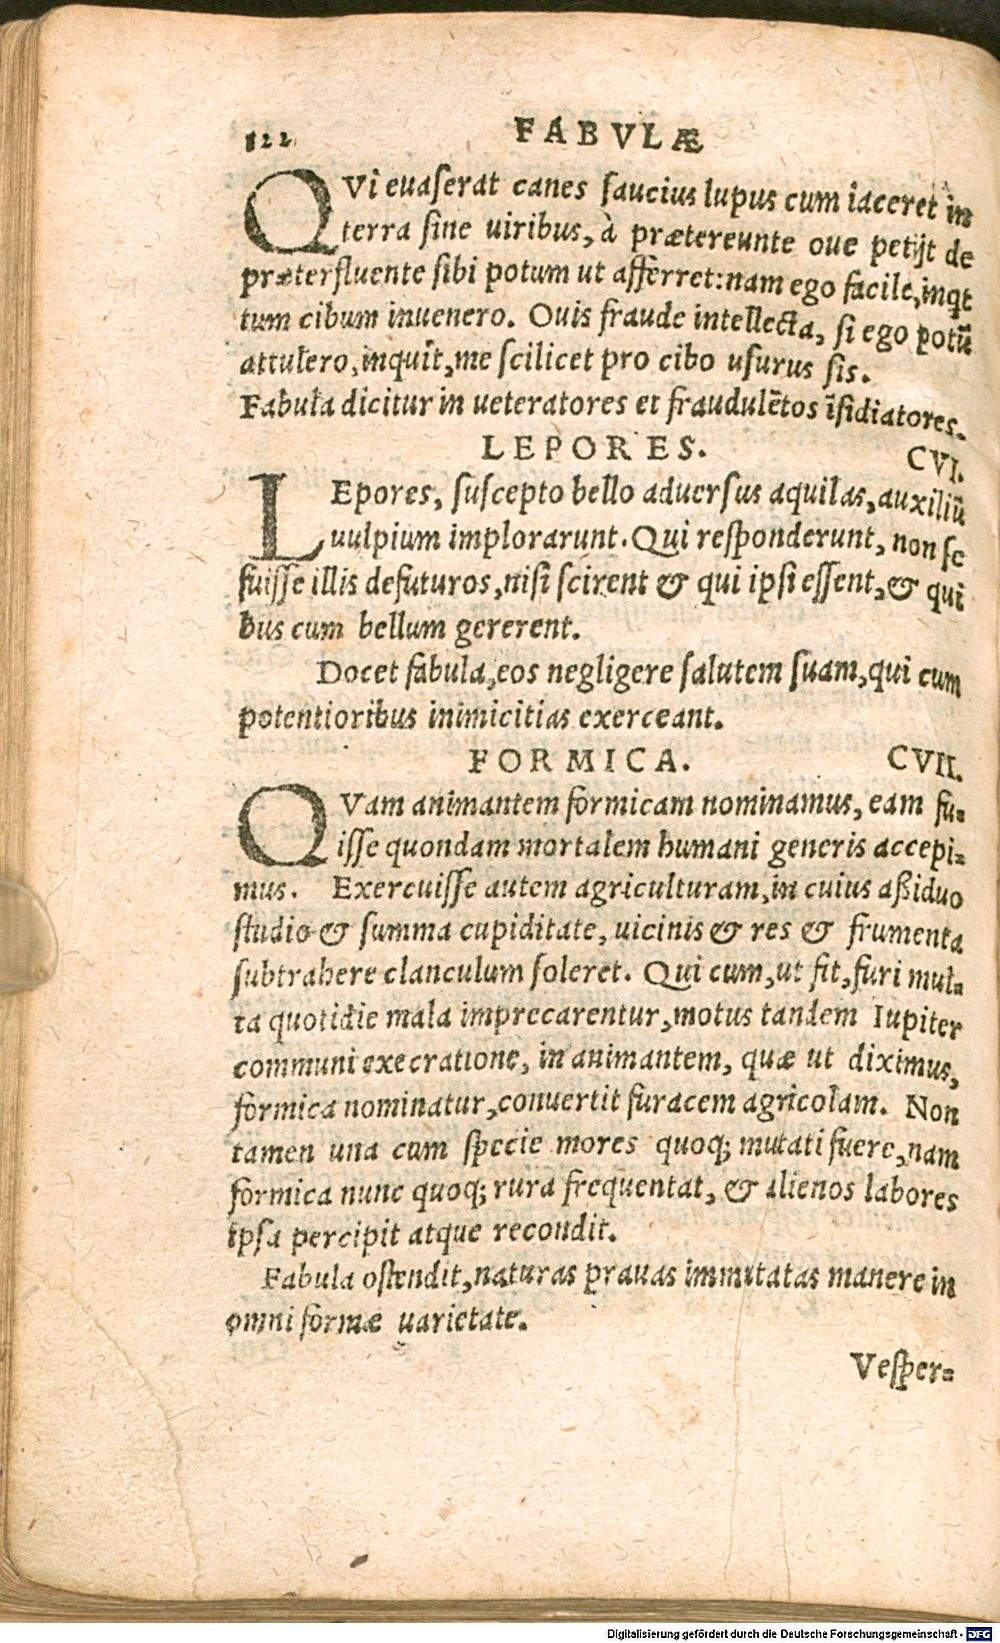 122 FABVLÆ
QVi euaſerat canes ſaucius lupus cum iaceret in
terra ſine uiribus, à prætereunte oue petijt de
præterfluente ſibi potum ut afferret: nam ego facile, inqt
tum cibum inuenero. Ouis fraude intellecta, ſi ego potū
attulero, inquit, me ſcilicet pro cibo uſurus ſis.
Fabula dicitur in ueteratores et fraudulētos īſidiatores.
LEPORES. CVI.
LEpores, ſuſcepto bello aduerſus aquilas, auxiliū
uulpium implorarunt. Qui reſponderunt, non ſe
fuiſſe illis defuturos, niſi ſcirent & qui ipſi eſſent, & qui
bus cum bellum gererent.
Docet fabula, eos negligere ſalutem ſuam, qui cum
potentioribus inimicitias exerceant.
FORMICA. CVII.
QVam animantem formicam nominamus, eam fu-
iſſe quondam mortalem humani generis accepi-
mus. Exercuiſſe autem agriculturam, in cuius aßiduo
ſtudio & ſumma cupiditate, uicinis & res & frumenta
ſubtrahere clanculum ſoleret. Qui cum, ut fit, furi mul-
ta quotidie mala imprecarentur, motus tandem Iupiter
communi execratione, in animantem, quæ ut diximus,
formica nominatur, conuertit furacem agricolam. Non
tamen una cum ſpecie mores quoq; mutati fuere, nam
formica nunc quoq; rura frequentat, & alienos labores
ipſa percipit atque recondit.
Fabula oſtendit, naturas prauas immutatas manere in
omni formæ uarietate.
Veſper-
Digitalisierung gefördert durch die Deutsche Forschungsgemeinschaft - DFG